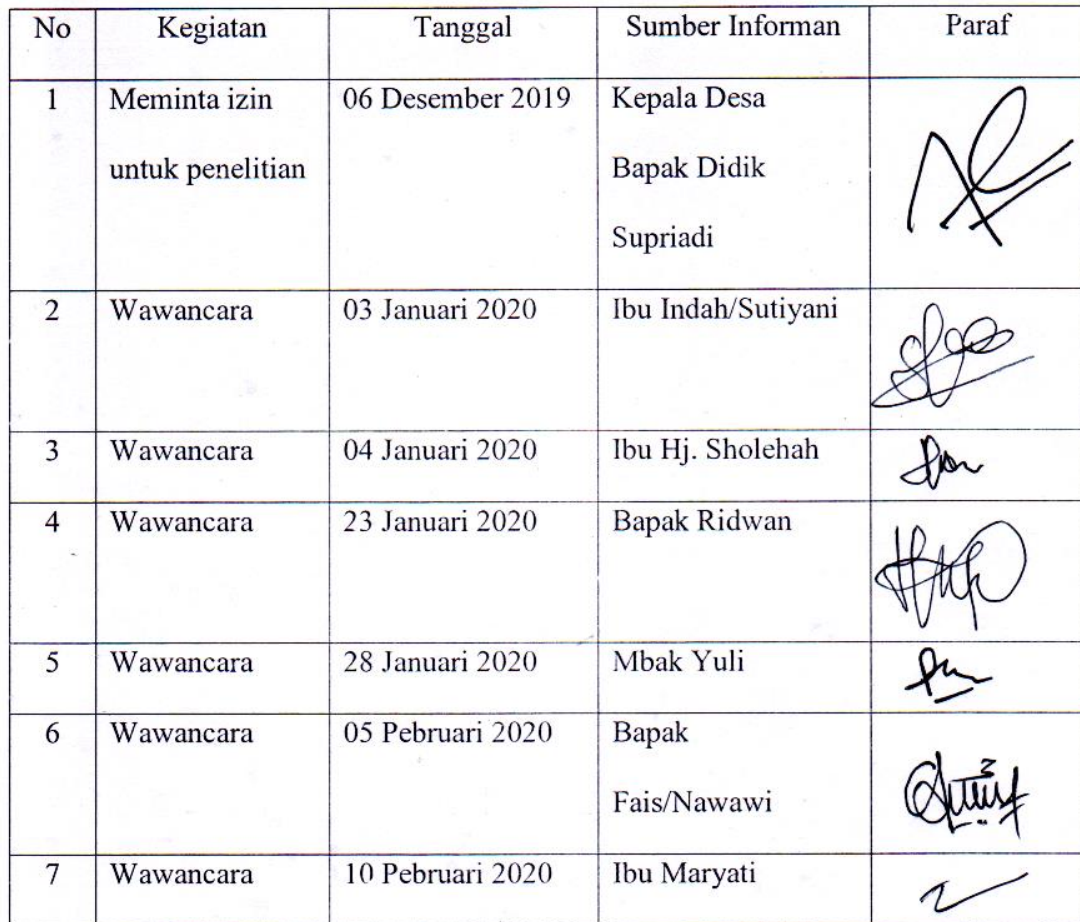 No Kegiatan Tanggal Sumber Informan Paraf
1 Meminta izin 06 Desember 2019 Kepala Desa
untuk penelitian Bapak Didik
Supriadi
2 Wawancara 03 Januari 2020 Ibu Indah/Sutiyani
3 Wawancara 04 Januari 2020 Ibu Hj. Sholehah
4 Wawancara 23 Januari 2020 Bapak Ridwan
5 Wawancara 28 Januari 2020 Mbak Yuli
6 Wawancara 05 Pebruari 2020 Bapak
Fais/Nawawi
7 Wawancara 10 Pebruari 2020 Ibu Maryati